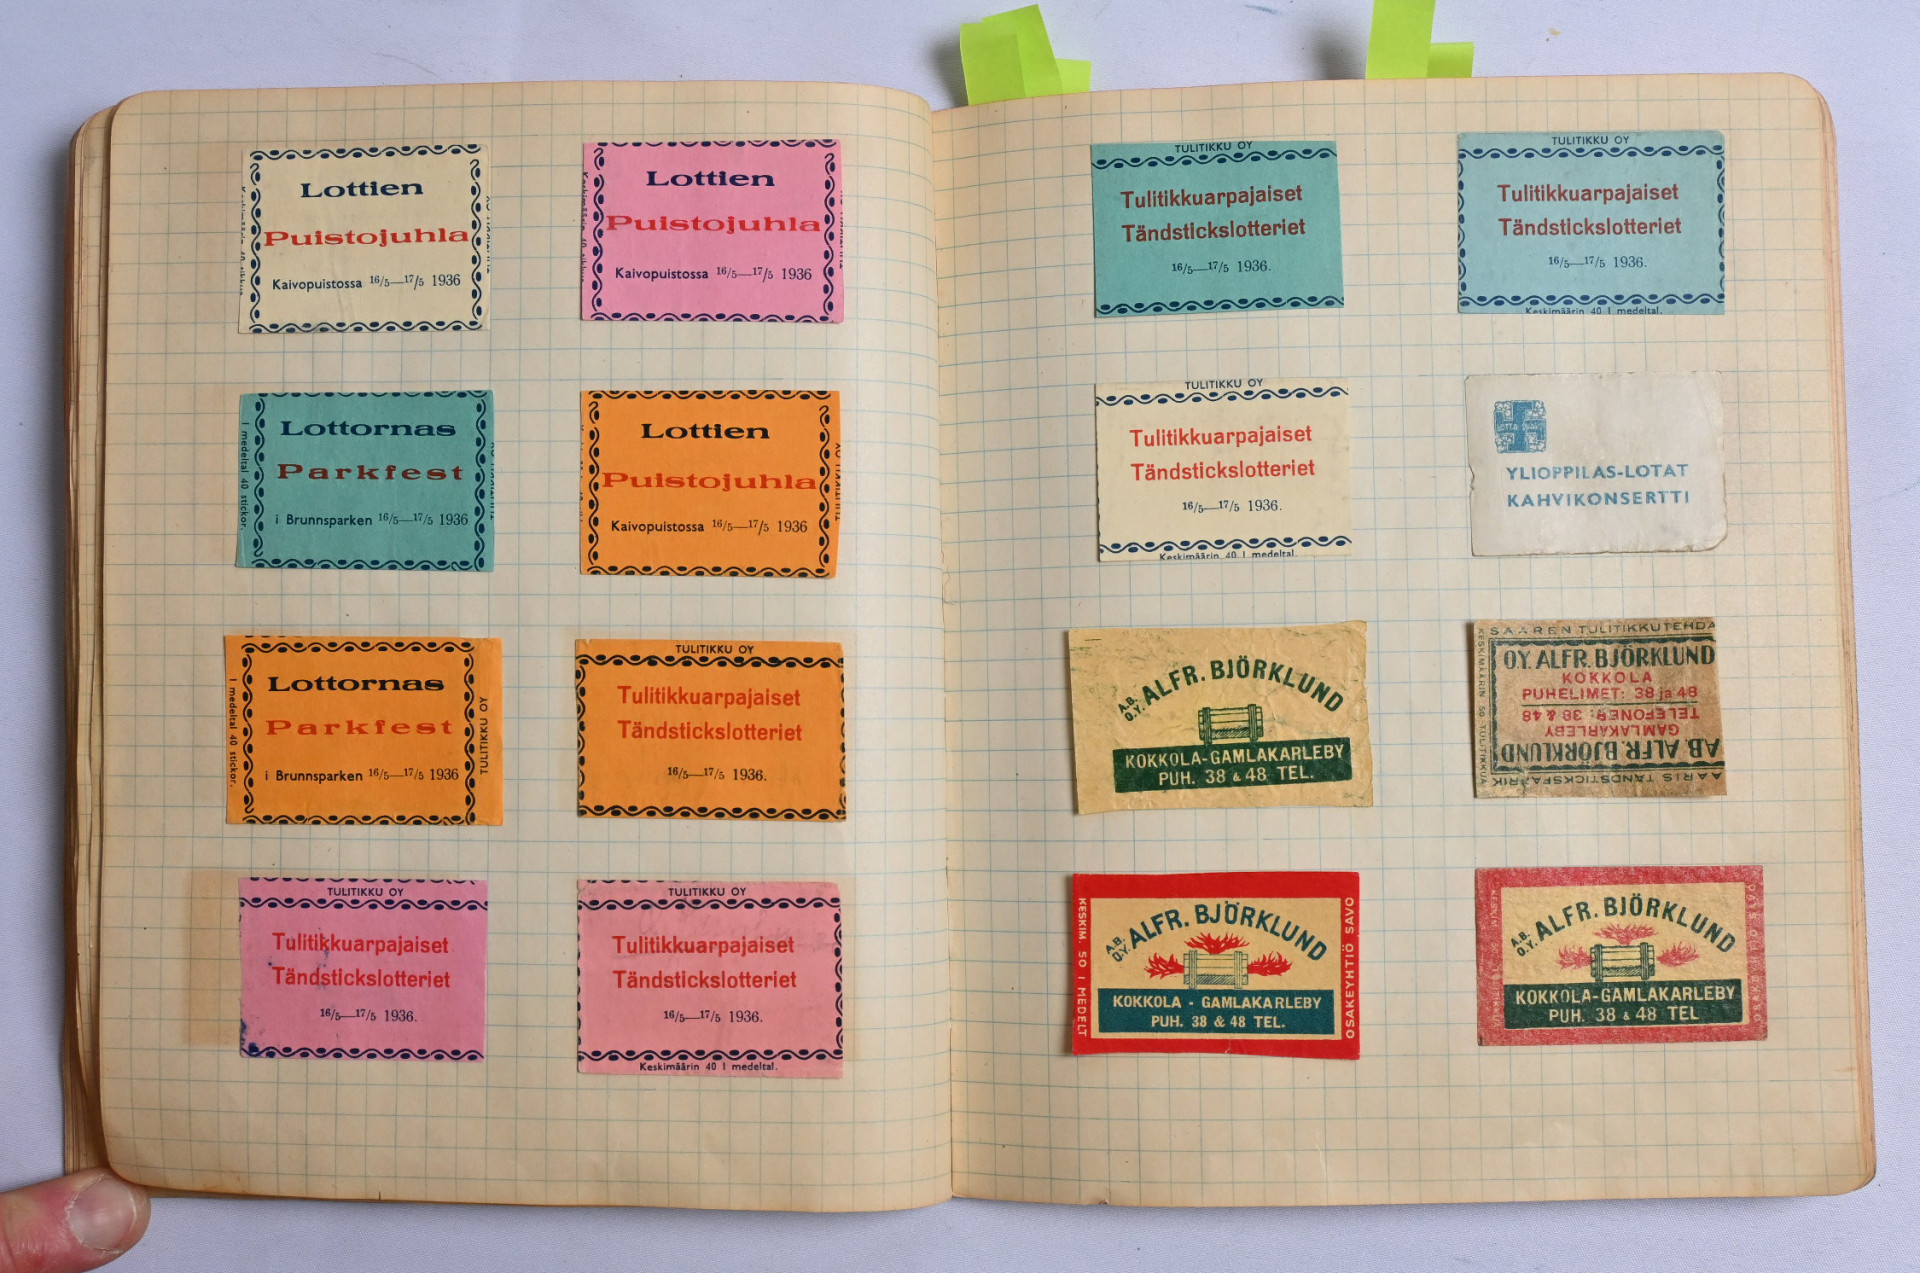 Lottien
Puistojuhla
Kaivopuistossa 16/5—17/5 1936
Lottien
Puistojuhla
Kaivopuistossa 16/5—17/5 1936
I medeltal 40 stickor.
Lottornas
Parkfest
i Brunnsparken 16/5—17/5 1936
Lottien
Puistojuhla
Kaivopuistossa 16/5—17/5 1936
TULITIKKU OY
I medeltal 40 stickor.
Lottornas
Parkfest
i Brunnsparken 16/5—17/5 1936
TULITIKKU OY
TULITIKKU OY
Tulitikkuarpajaiset
Tändstickslotteriet
16/5—17/5 1936.
TULITIKKU OY
Tulitikkuarpajaiset
Tändstickslotteriet
16/5—17/5 1936.
TULITIKKU OY
Tulitikkuarpajaiset
Tändstickslotteriet
16/5—17/5 1936.
Keskimäärin 40 I medeltal.
TULITIKKU OY
Tulitikkuarpajaiset
Tändstickslotteriet
16/5—17/5 1936.
TULITIKKU OY
Tulitikkuarpajaiset
Tändstickslotteriet
16/5—17/5 1936.
Keskimäärin 40 I medeltal.
TULITIKKU OY
Tulitikkuarpajaiset
Tändstickslotteriet
16/5—17/5 1936.
Keskimäärin 40 I medeltal.
LOTTA SVÄRD
YLIOPPILAS-LOTAT
KAHVIKONSERTTI
A.B. O.Y. ALFR. BJÖRKLUND
KOKKOLA-GAMLAKARLEBY
PUH. 38 & 48 TEL.
SAAREN TULITIKKUTEHDA
KESKIMÄÄRIN 50 TULITIKKUA
OY. ALFR. BJÖRKLUND
KOKKOLA
PUHELIMET: 38 ja 48
TELEFONER: 38 & 48
GAMLAKARLEBY
AB. ALFR. BJÖRKLUND
AARIS TÄNDSTICKSFABRIK
KESKIM. 50 I MEDELT
A.B. O.Y. ALFR. BJÖRKLUND
KOKKOLA - GAMLAKARLEBY
PUH. 38 & 48 TEL.
OSAKEYHTIÖ SAVO
A.B. O.Y. ALFR. BJÖRKLUND
KOKKOLA-GAMLAKARLEBY
PUH. 38 & 48 TEL
OSAKEYHTIÖ SAVO